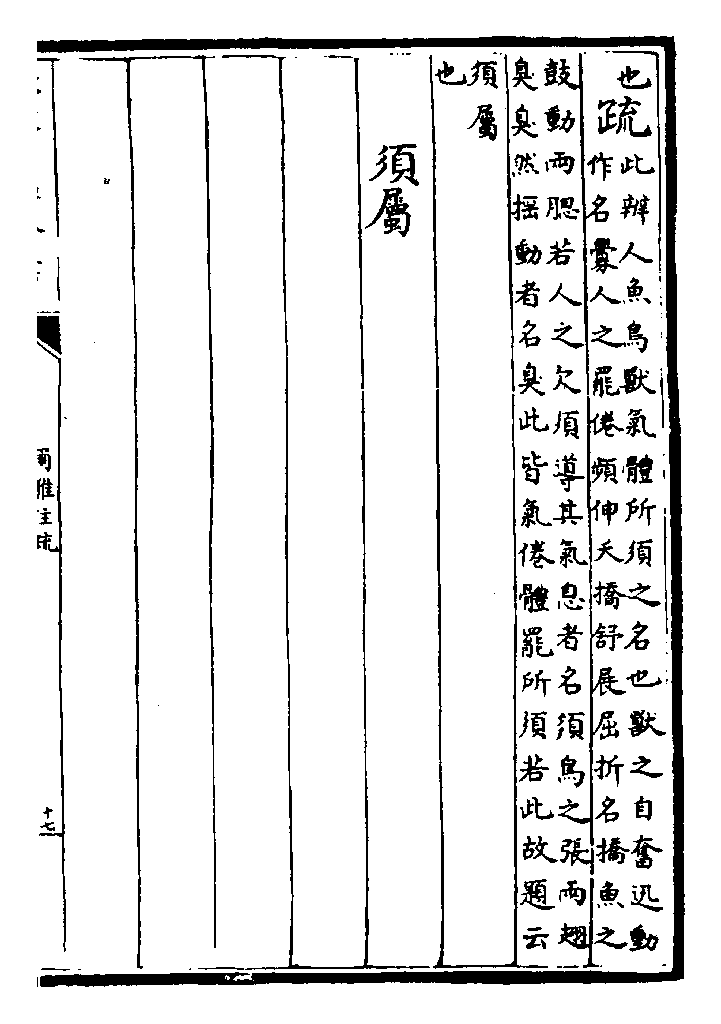 也疏此辨人魚鳥獸氣體所須之名也獸之自奮迅動
作名釁人之罷倦頻伸夭撟舒展屈折名撟魚之
鼓動兩腮若人之欠須導其氣息者名須鳥之張兩翅
臭臭然揺動者名臭此皆氣倦體罷所須若此故題云
須屬
也
須屬
爾雅注疏
十七